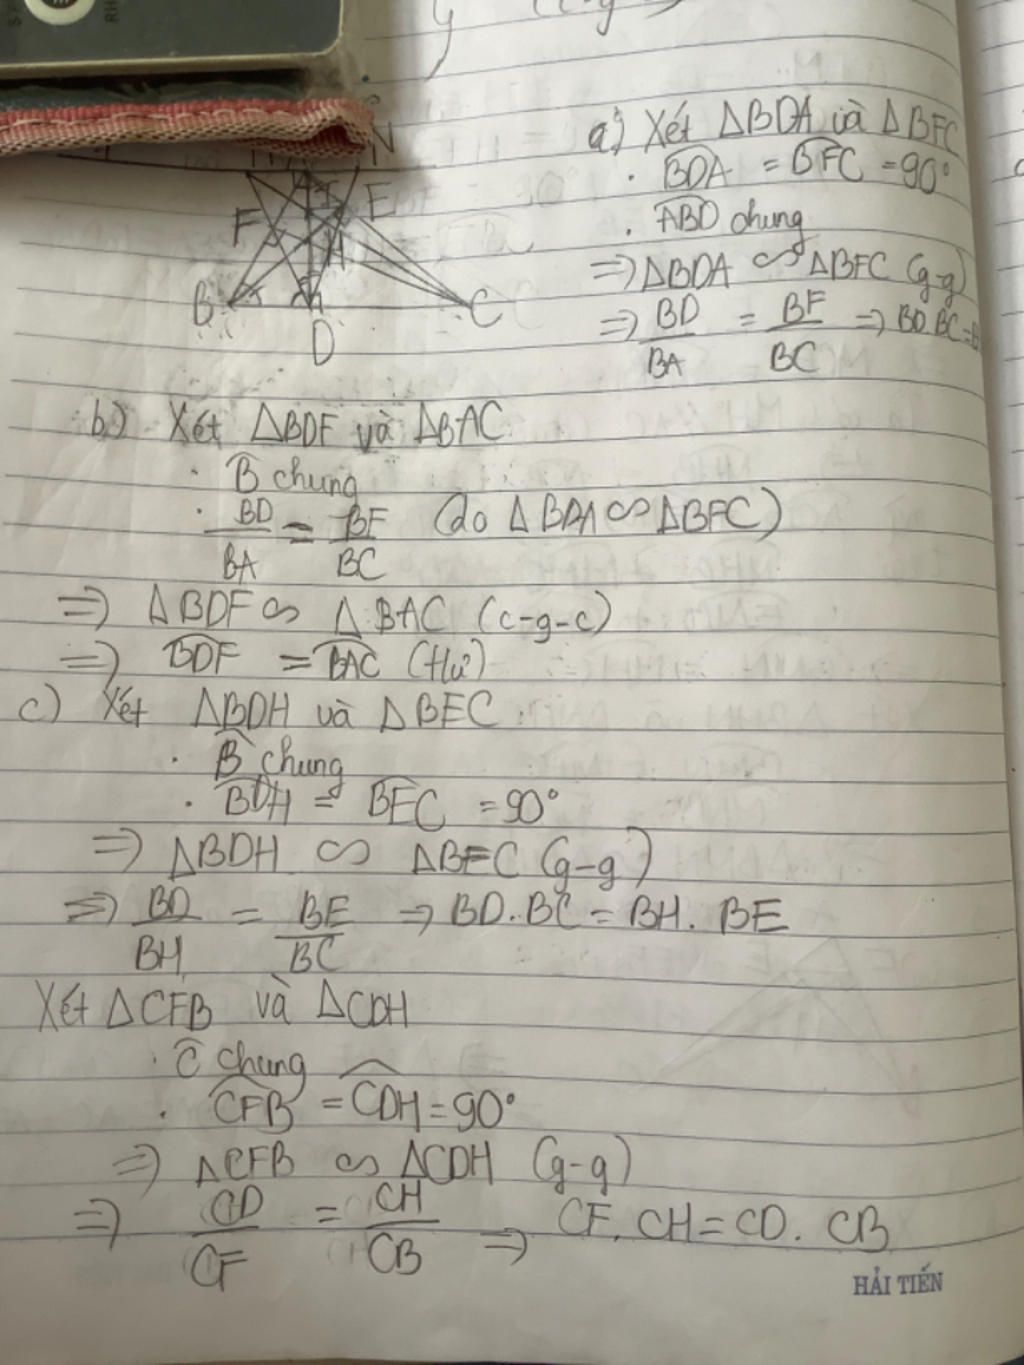 N
F
E
I
H
B
C
D
a) Xét ΔBDA và ΔBFC
. BDA = BFC = 90°
. ABD chung
=> ΔBDA ∽ ΔBFC (g-g)
=> BD/BA = BF/BC => BD.BC =
b) Xét ΔBDF và ΔBAC
. B chung
. BD/BA = BF/BC (do ΔBDA ∽ ΔBFC)
=> ΔBDF ∽ ΔBAC (c-g-c)
=> BDF = BAC (tứ)
c) Xét ΔBDH và ΔBEC
. B chung
. BDH = BEC = 90°
=> ΔBDH ∽ ΔBEC (g-g)
=> BD/BH = BE/BC => BD.BC = BH.BE
Xét ΔCFB và ΔCDH
. C chung
. CFB = CDH = 90°
=> ΔCFB ∽ ΔCDH (g-g)
=> CD/CF = CH/CB => CF.CH = CD.CB
HẢI TIẾN